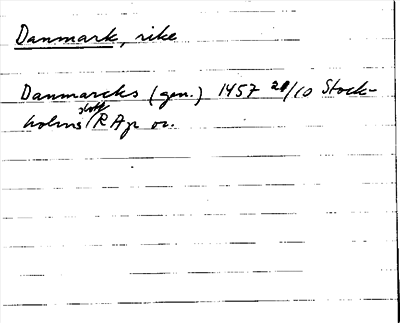 Danmark, rike
Danmarcks (gen.) 1457 20/10 Stock-
holms slott RAp or.